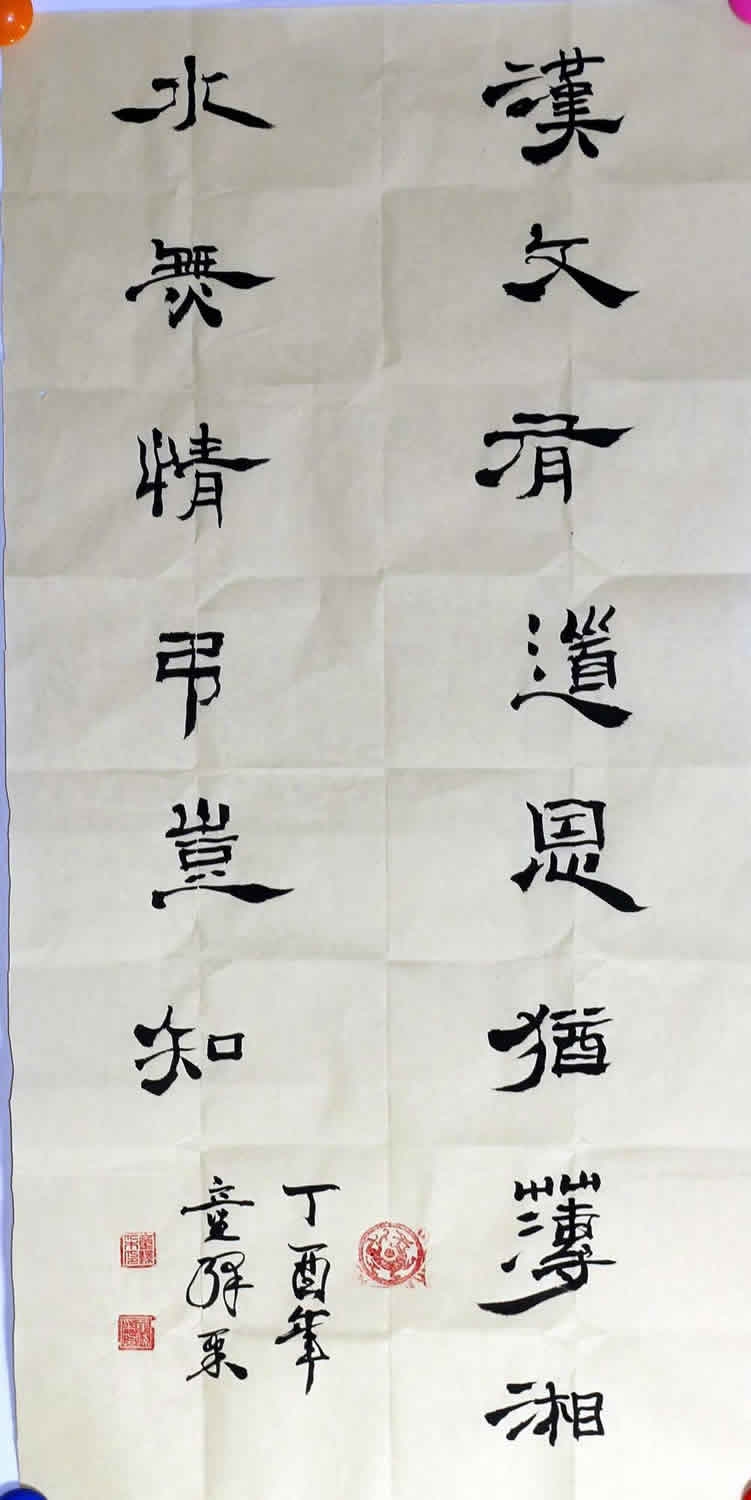 漢文有道恩猶薄湘
水無情弔豈知
丁酉年